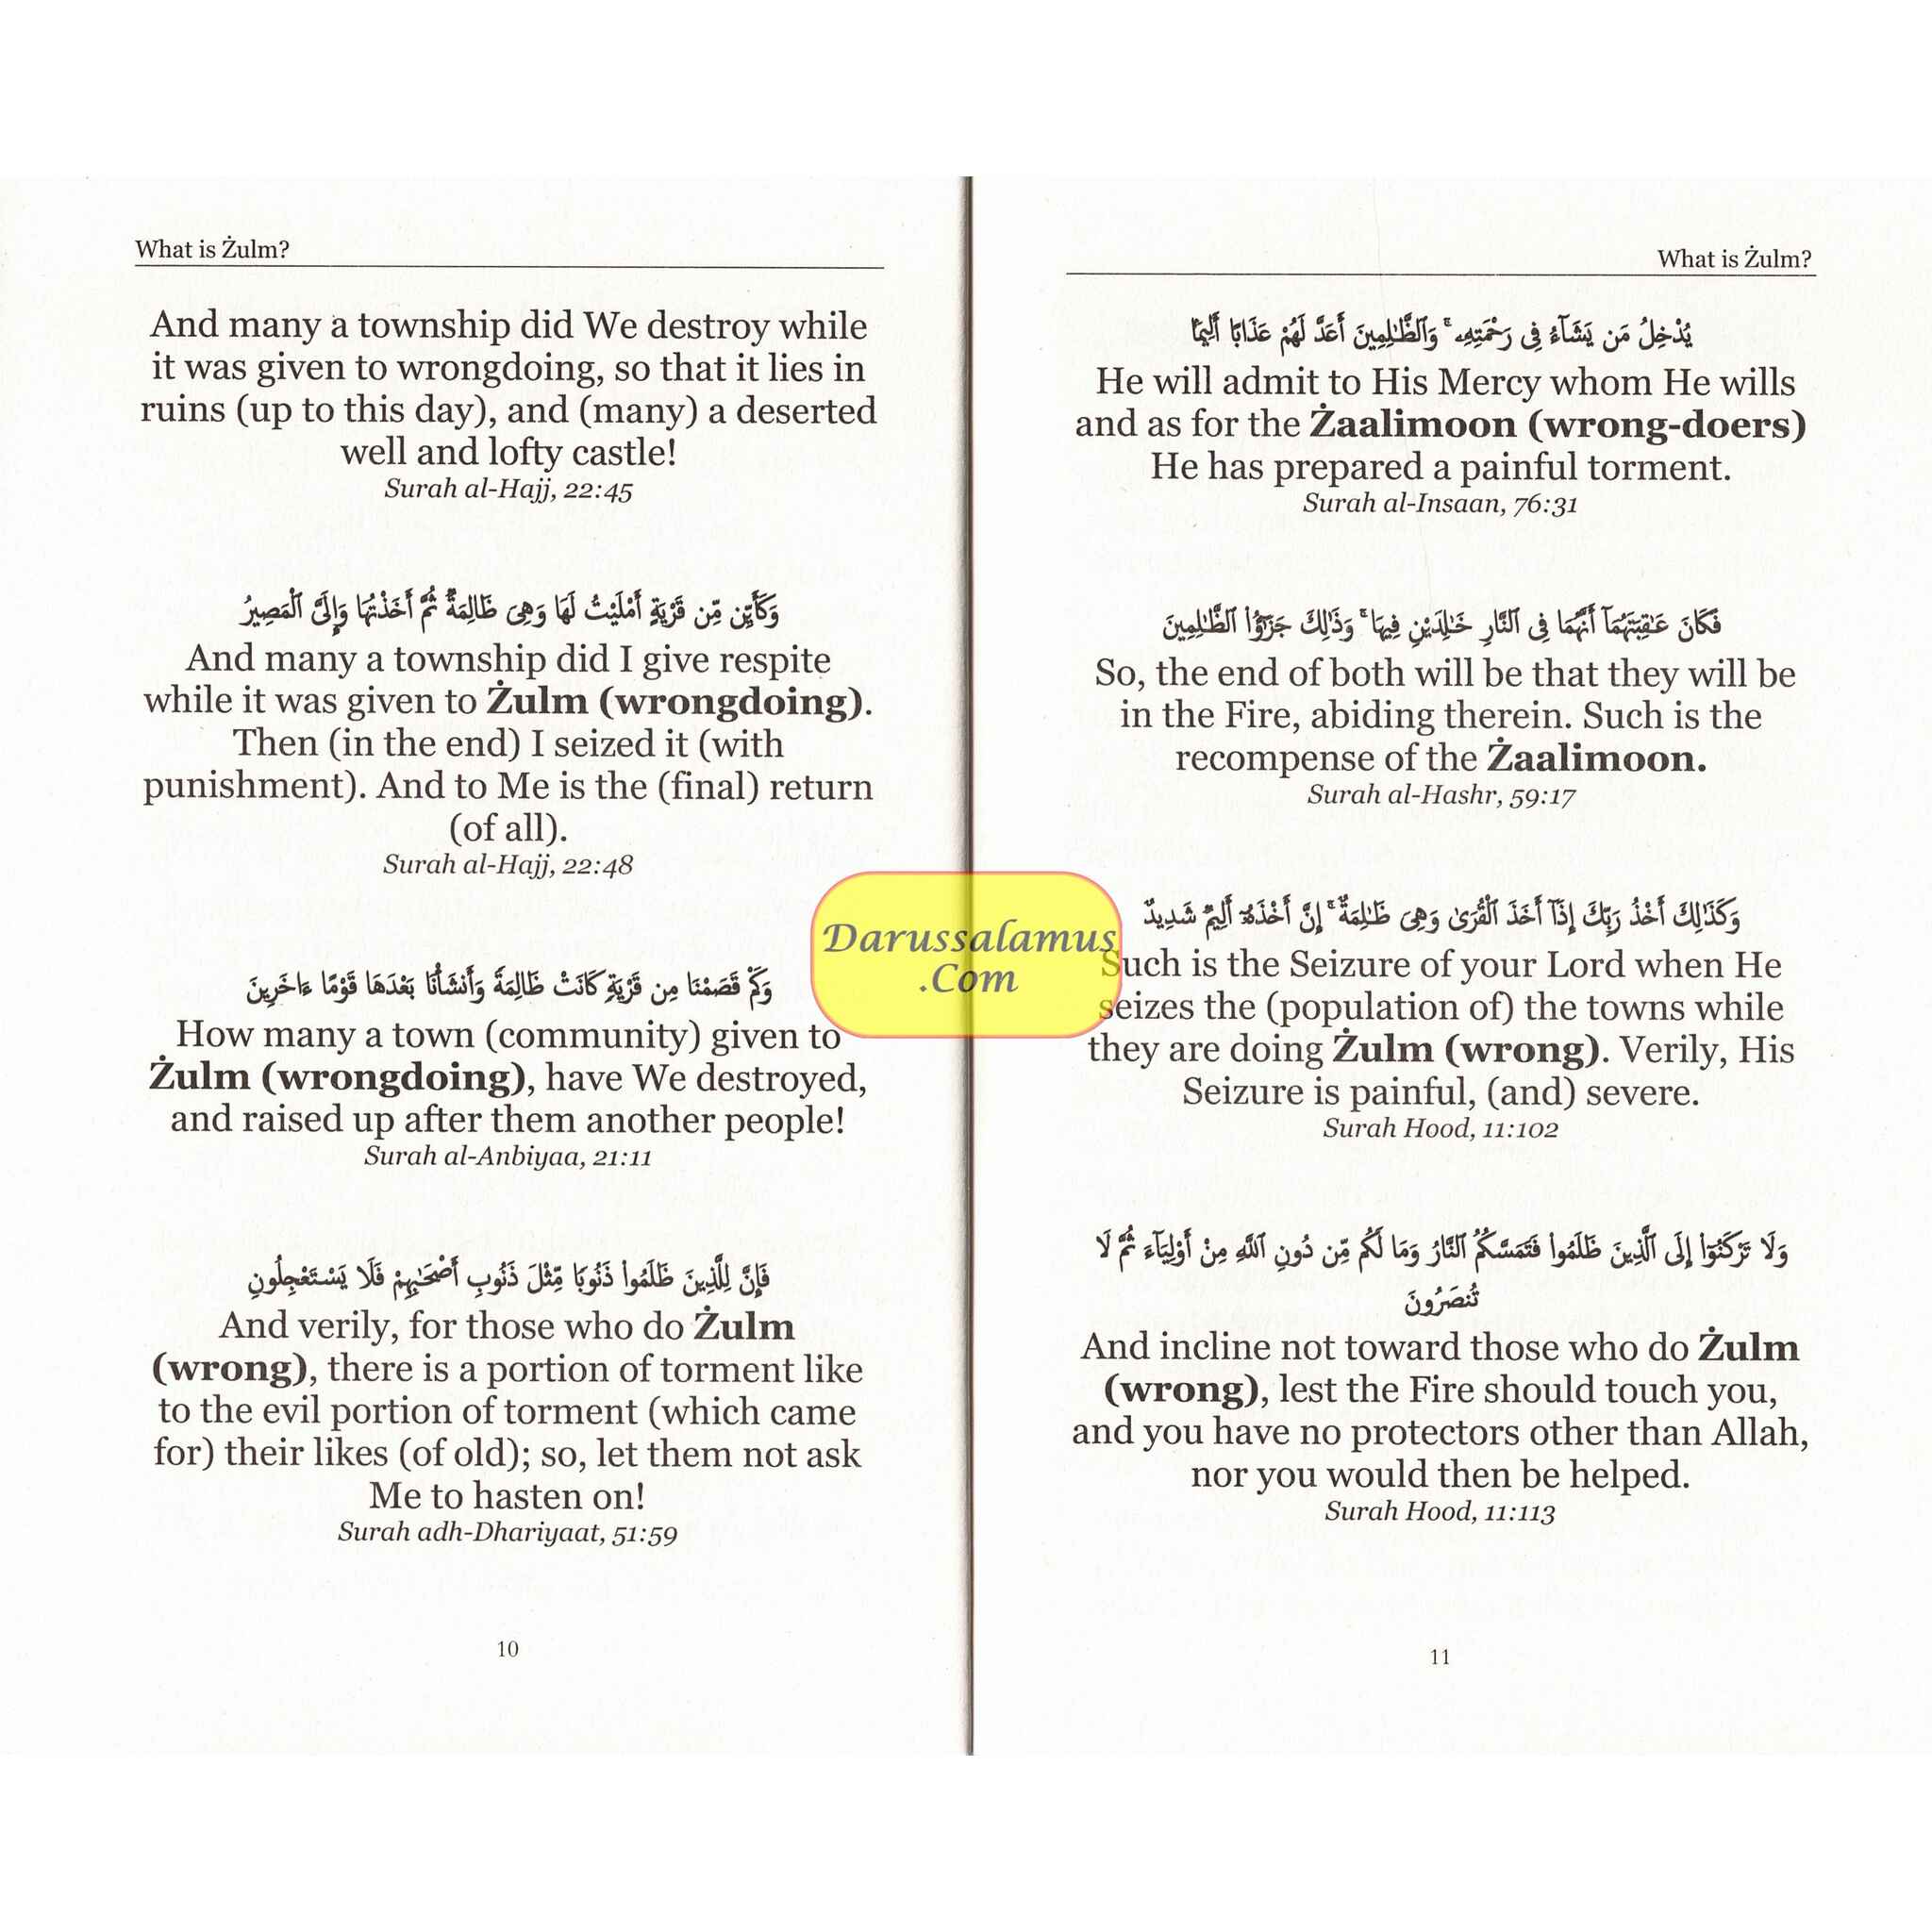 What is Żulm?
And many a township did We destroy while
it was given to wrongdoing, so that it lies in
ruins (up to this day), and (many) a deserted
well and lofty castle!
Surah al-Hajj, 22:45
وَكَأَيِّن مِّن قَرْيَةٍ أَمْلَيْتُ لَهَا وَهِىَ ظَالِمَةٌ ثُمَّ أَخَذْتُهَا وَإِلَىَّ ٱلْمَصِيرُ
And many a township did I give respite
while it was given to Żulm (wrongdoing).
Then (in the end) I seized it (with
punishment). And to Me is the (final) return
(of all).
Surah al-Hajj, 22:48
وَكَمْ قَصَمْنَا مِن قَرْيَةٍ كَانَتْ ظَالِمَةً وَأَنشَأْنَا بَعْدَهَا قَوْمًا ءَاخَرِينَ
How many a town (community) given to
Żulm (wrongdoing), have We destroyed,
and raised up after them another people!
Surah al-Anbiyaa, 21:11
فَإِنَّ لِلَّذِينَ ظَلَمُوا۟ ذَنُوبًا مِّثْلَ ذَنُوبِ أَصْحَـٰبِهِمْ فَلَا يَسْتَعْجِلُونِ
And verily, for those who do Żulm
(wrong), there is a portion of torment like
to the evil portion of torment (which came
for) their likes (of old); so, let them not ask
Me to hasten on!
Surah adh-Dhariyaat, 51:59
10
What is Żulm?
يُدْخِلُ مَن يَشَآءُ فِى رَحْمَتِهِۦ ۚ وَٱلظَّـٰلِمِينَ أَعَدَّ لَهُمْ عَذَابًا أَلِيمًۢا
He will admit to His Mercy whom He wills
and as for the Żaalimoon (wrong-doers)
He has prepared a painful torment.
Surah al-Insaan, 76:31
فَكَانَ عَـٰقِبَتَهُمَآ أَنَّهُمَا فِى ٱلنَّارِ خَـٰلِدَيْنِ فِيهَا ۚ وَذَٰلِكَ جَزَٰٓؤُا۟ ٱلظَّـٰلِمِينَ
So, the end of both will be that they will be
in the Fire, abiding therein. Such is the
recompense of the Żaalimoon.
Surah al-Hashr, 59:17
Darussalamus
.Com
وَكَذَٰلِكَ أَخْذُ رَبِّكَ إِذَآ أَخَذَ ٱلْقُرَىٰ وَهِىَ ظَـٰلِمَةٌ ۚ إِنَّ أَخْذَهُۥٓ أَلِيمٌ شَدِيدٌ
Such is the Seizure of your Lord when He
seizes the (population of) the towns while
they are doing Żulm (wrong). Verily, His
Seizure is painful, (and) severe.
Surah Hood, 11:102
وَلَا تَرْكَنُوٓا۟ إِلَى ٱلَّذِينَ ظَلَمُوا۟ فَتَمَسَّكُمُ ٱلنَّارُ وَمَا لَكُم مِّن دُونِ ٱللَّهِ مِنْ أَوْلِيَآءَ ثُمَّ لَا
تُنصَرُونَ
And incline not toward those who do Żulm
(wrong), lest the Fire should touch you,
and you have no protectors other than Allah,
nor you would then be helped.
Surah Hood, 11:113
11